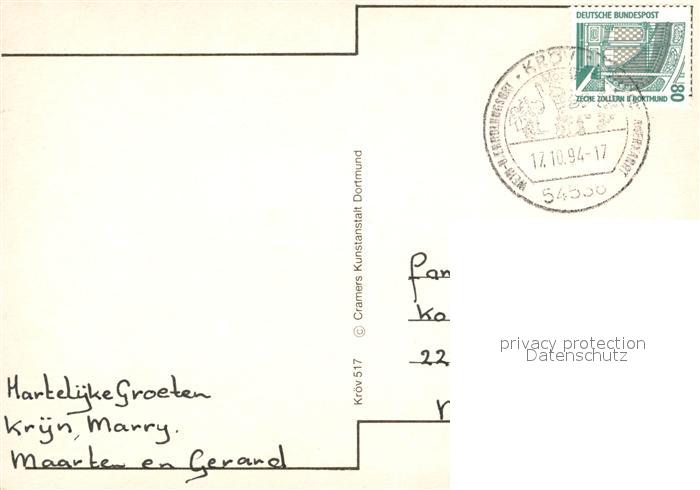 DEUTSCHE BUNDESPOST
ZECHE ZOLLERN II DORTMUND
80
KRÖV
WEIN-U.ERHOLUNGSORT
ANERKANNT
17.10.94-17
54536
Kröv 517 © Cramers Kunstanstalt Dortmund
Fam
Ko
22
privacy protection
Datenschutz
Hartelijke Groeten
Krijn, Marry.
Maarten en Gerard